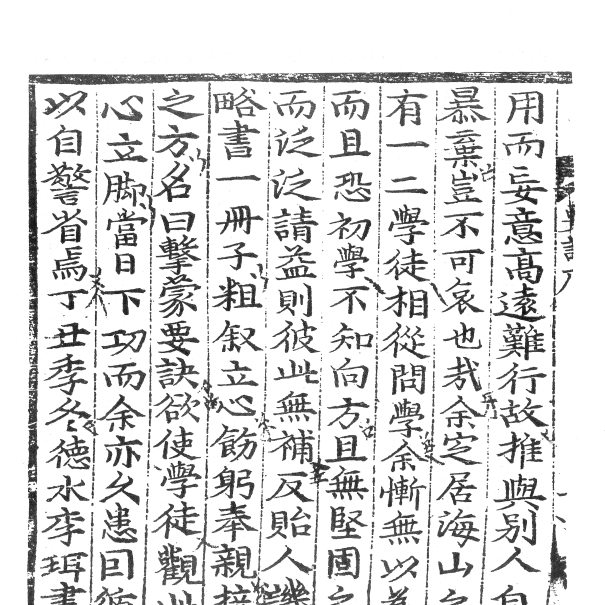 用而妄意高遠難行故推與別人自
暴棄豈不可哀也哉余定居海山之
有一二學徒相從問學余慚無以爲
而且恐初學不知向方且無堅固之
而泛泛請益則彼此無補反貽人譏
略書一冊子粗叙立心飭躬奉親接
之方名曰擊蒙要訣欲使學徒觀此
心立脚當日下功而余亦久患囙循
以自警省焉丁丑季冬德水李珥書